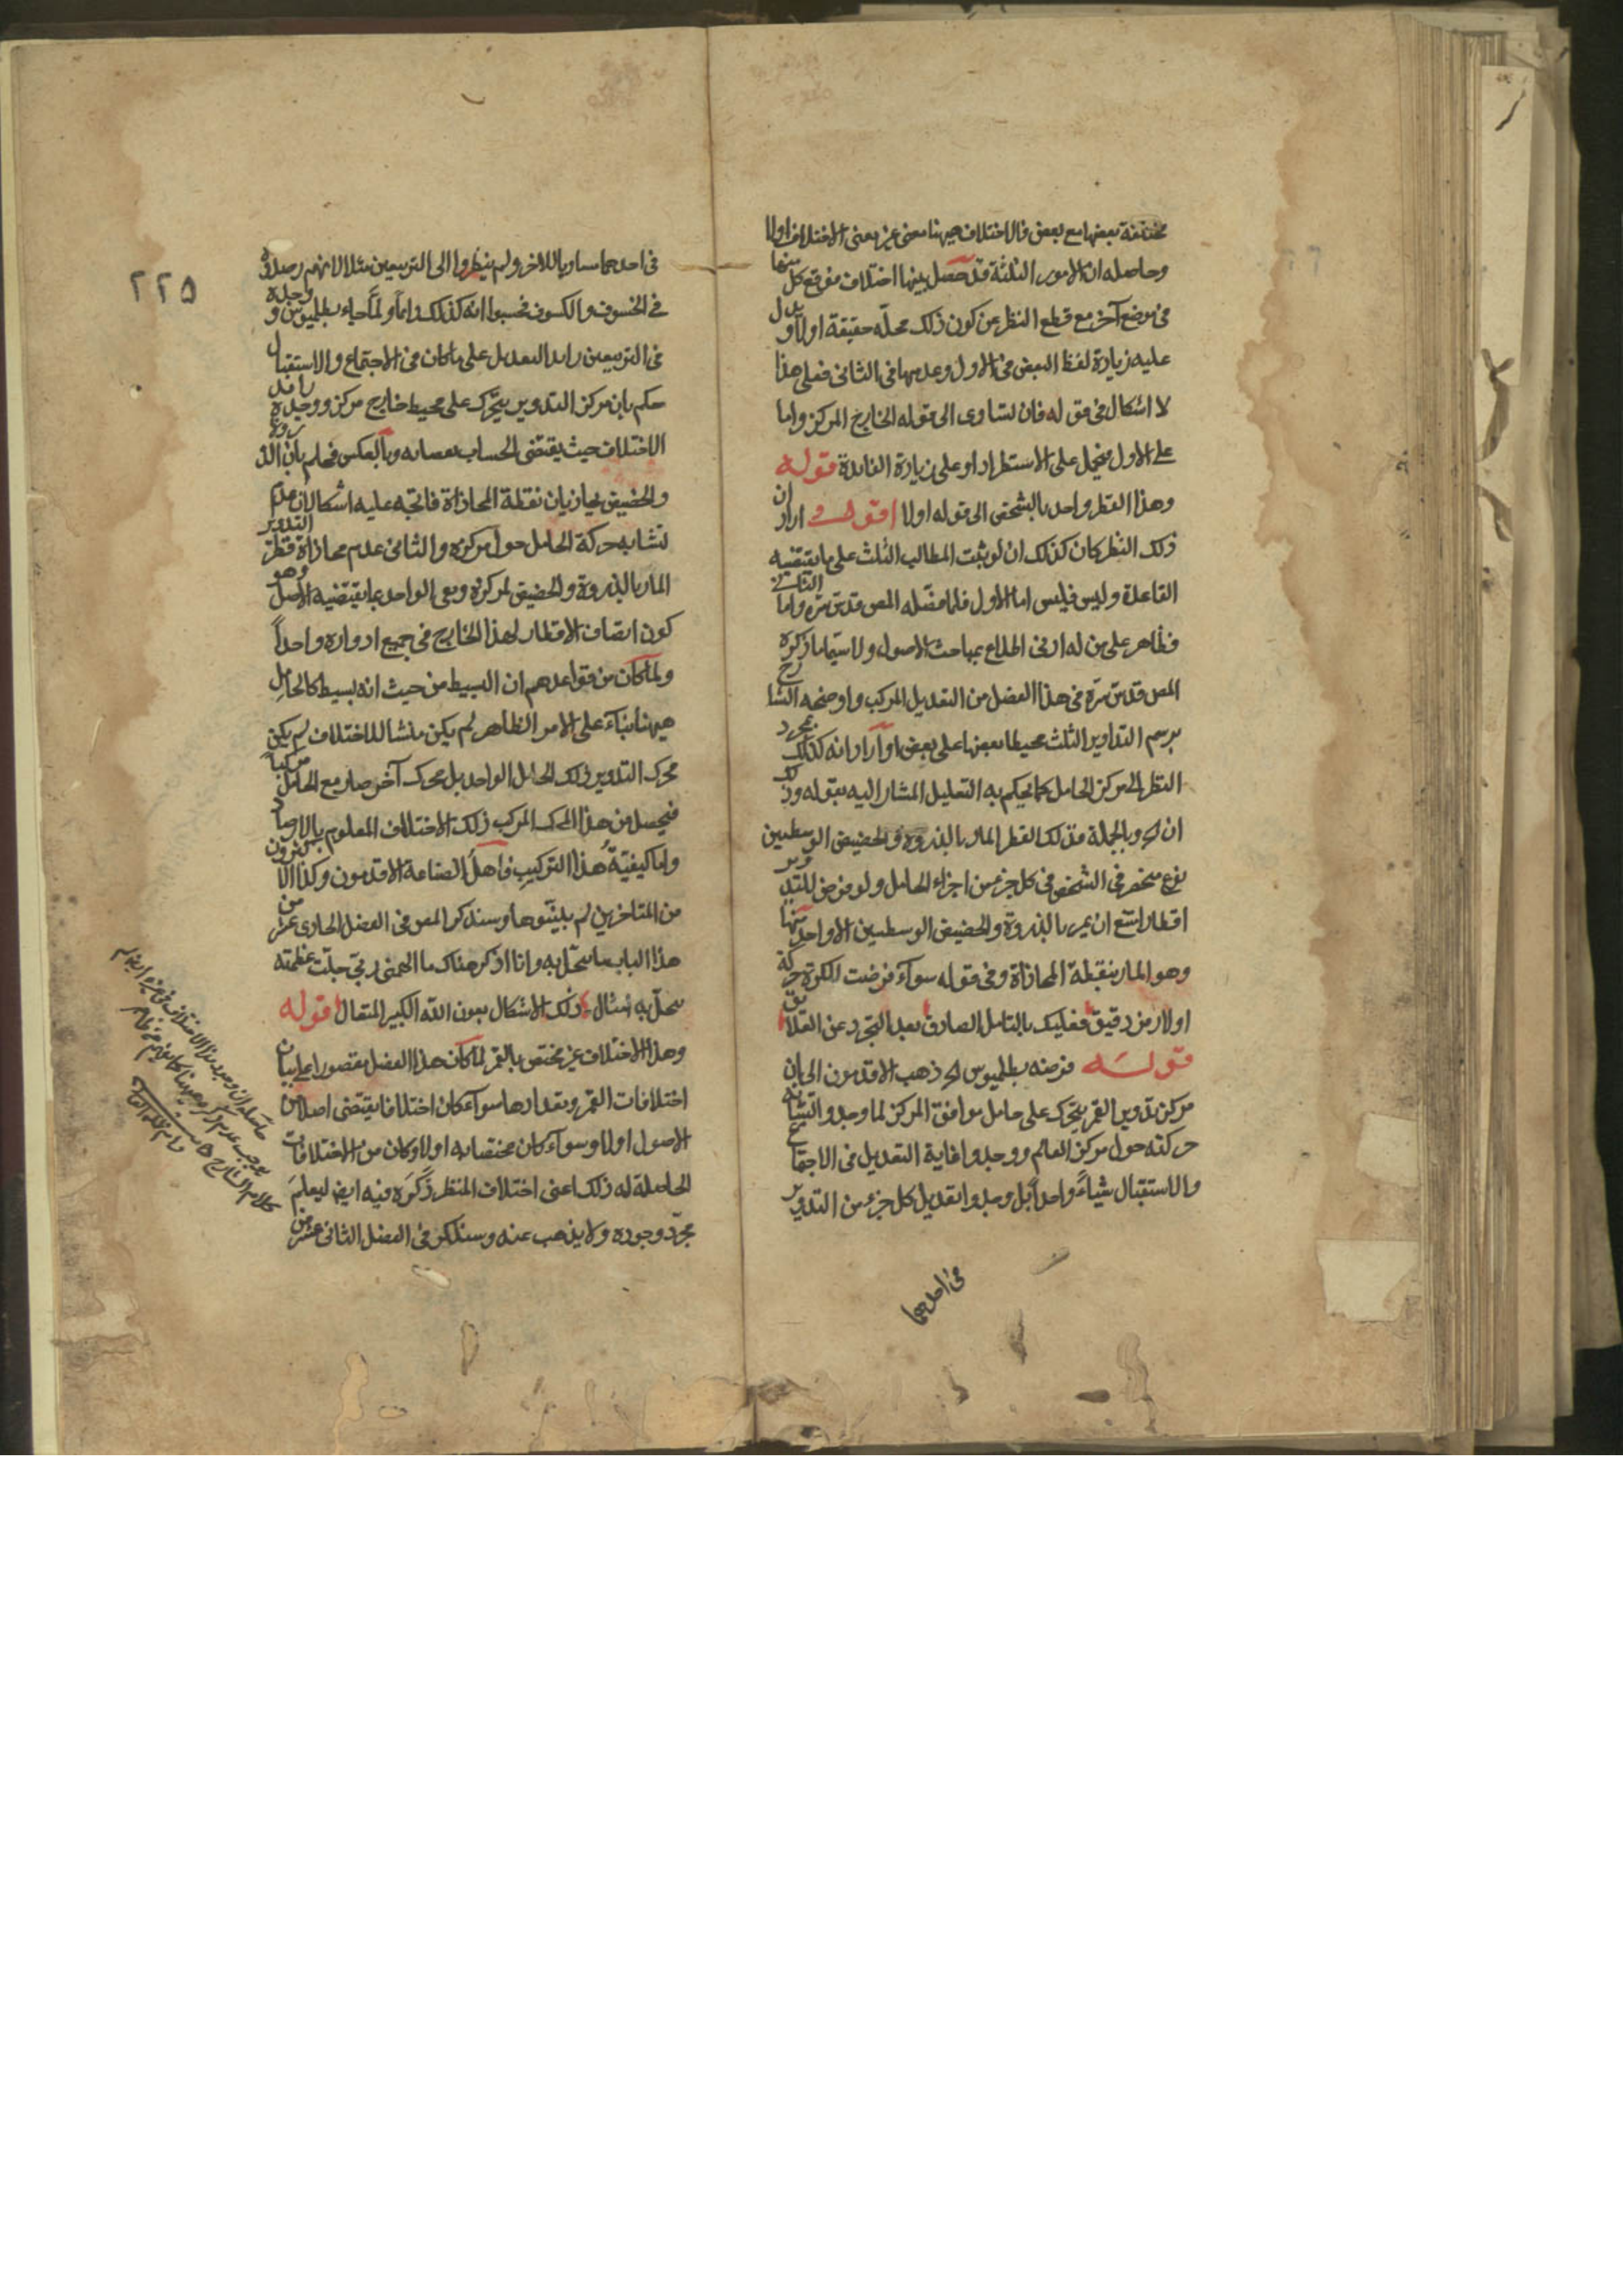 مختلفة بعضها مع بعض فالاختلاف هيهنا معنى غير معنى الاختلاف اولا
وحاصله ان الامور الثلثة قد حصل بينها اختلاف فوقع كل منها
فى موضع آخر مع قطع النظر عن كون ذلك محله حقيقة اولا ويدل
عليه زيادة لفظ البعض فى الاول وعدمها فى الثانى فعلى هذا
لا اشكال فى قوله فان تساوى الى قوله الخارج المركز واما
على الاول فيحمل على الاستطراد او على زيادة الفايدة قوله
وهذا القطر واحد بالشخص الى قوله اولا اقول اراد ان
ذلك القطر كان كذلك ان لو ثبت المطالب الثلث على ما يقتضيه
القاعدة وليس فليس اما الاول فلما فصله المص قدس سره واما الثانى
فظاهر على من له ادنى اطلاع بمباحث الاصول ولا سيما ما ذكره
المص قدس سره فى هذا الفصل من التعديل المركب واوضحه الشارح
برسم التداوير الثلث محيطا بعضها على بعض او اراد انه كذلك بمجرد
النظر الى مركز الحامل كما يحكم به التعليل المشار اليه بقوله وذلك
ان الخ وبالجملة فذلك القطر المار بالذروة والحضيض الوسطيين
نوع منحصر فى الشخص فى كل جزء من اجزاء الحامل ولو فرض للتدوير
اقطار امتنع ان يمر بالذروة والحضيض الوسطيين الا واحد منها
وهو المار بنقطة المحاذاة وفى قوله سواء فرضت للكرة حركة
اولا رمز دقيق فعليك بالتامل الصادق بعد التجرد عن العلائق
قوله فرضه بطلميوس الخ ذهب الاقدمون الى ان
مركز تدوير القمر يتحرك على حامل موافق المركز لما وجدوا تشابه
حركته حول مركز العالم ووجدوا غاية التعديل فى الاجتماع
والاستقبال شياءً واحداً بل وجدوا تعديل كل جزء من التدوير
فى احدهما
٢٢٥
فى احدهما مساويا للاخر ولم ينظروا الى التربيعين مثلا لانهم رصدوه
فى الخسوف والكسوف فحسبوا انه كذلك دايما ولما جاء بطلميوس ووجده
فى التربيعين زايد التعديل على ما كان فى الاجتماع والاستقبال
حكم بان مركز التدوير يتحرك على محيط خارج مركز ووجده زايد
الاختلاف حيث يقتضى الحساب نقصانه وبالعكس فحكم بان الذروة
والحضيض يحاذيان نقطة المحاذاة فاتجه عليه اشكالان عدم
تشابه حركة الحامل حول مركزه والثانى عدم محاذاة قطر التدوير
المار بالذروة والحضيض لمركزه ومعى الواحد بما يقتضيه الاصل وهو
كون انصاف الاقطار لهذا الخارج فى جميع ادواره واحداً
ولما كان من قواعدهم ان البسيط من حيث انه بسيط كالحامل
هيهنا بناء على الامر الظاهر لم يكن منشا للاختلاف لم يكن
محرك التدوير ذلك الحامل الواحد بل محرك آخر صار مع الحامل مركبا
فيحصل من هذا المركب ذلك الاختلاف المعلوم بالارصاد
واما كيفية هذا التركيب فاهل الصناعة الاقدمون وكذا الاكثرون
من المتاخرين لم يبينوها وسنذكر المص فى الفصل الحادى عشر من
هذا الباب ما ينحل به وانا اذكر هناك ما الهمنى ربى جلت عظمته
ينحل به امثال ذلك الاشكال بعون الله الكبير المتعال قوله
وهذا الاختلاف غير مختص بالقمر لما كان هذا الفصل مقصورا على بيان
اختلافات القمر ومقدارها سواء كان اختلافا يقتضى اصلا من
الاصول اولا وسواء كان مختصا به اولا وكان من الاختلافات
الحاصلة له ذلك اعنى اختلاف المنظر ذكره فيه ايضا ليعلم
مجرد وجوده ولا يذهب عنه وسنذكر فى الفصل الثانى عشر من